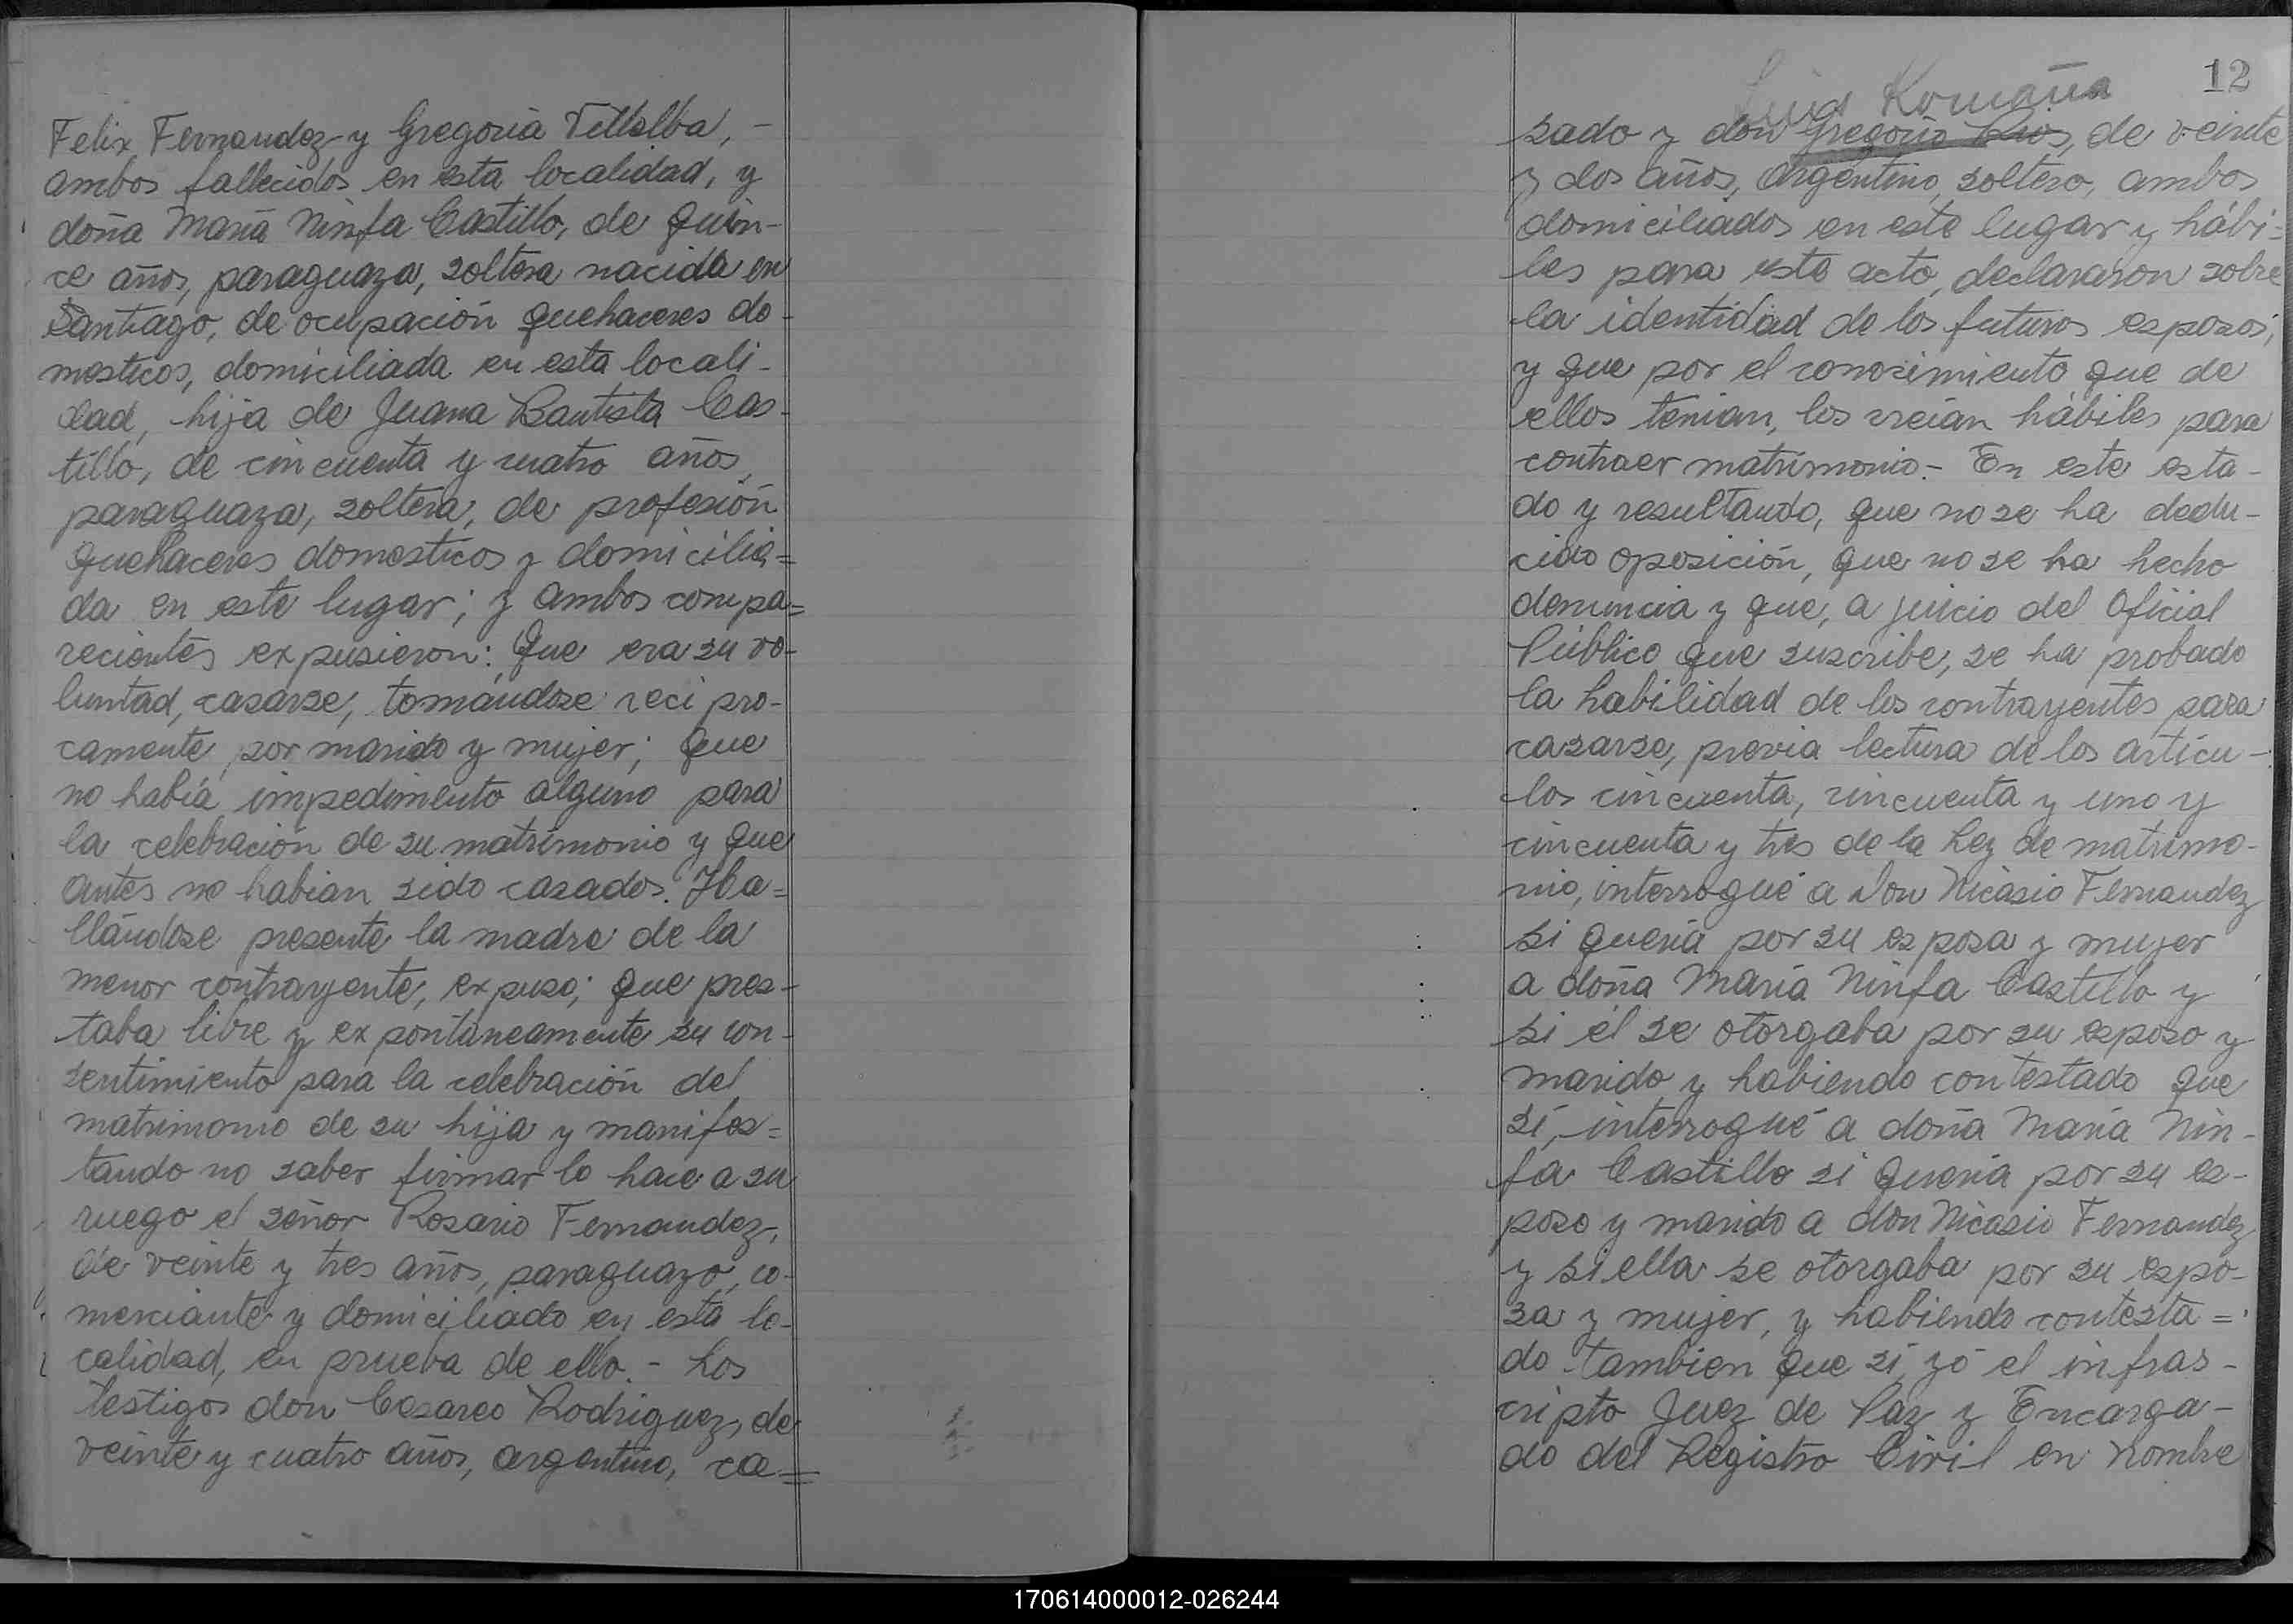 Felix Fernandez y Gregoria Villalba, -
ambos fallecidos en esta localidad, y
doña María Ninfa Castillo, de quin-
ce años, paraguaya, soltera nacida en
Santiago, de ocupación quehaceres do-
mesticos, domiciliada en esta locali-
dad, hija de Juana Bautista Cas-
tillo, de cincuenta y cuatro años,
paraguaya, soltera, de profesión
quehaceres domesticos y domicilia=
da en este lugar; y ambos compa=
recientes expusieron: Que era su vo-
luntad, casarse, tomándose reci pro-
camente, por marido y mujer; que
no había impedimento alguno para
la celebración de su matrimonio y que
antes no habian sido casados. Ha=
llándose presente la madre de la
menor contrayente, expuso; que pres-
taba libre y expontáneamente su con-
sentimiento para la celebración del
matrimonio de su hija y manifes=
tando no saber firmar lo hace a su
ruego el señor Rosario Fernandez,
de veinte y tres años, paraguayo, co-
merciante y domiciliado en esta lo-
calidad, en prueba de ello. - Los
testigos don Cesareo Rodriguez, de
veinte y cuatro años, argentino, ca=
12
Luis Romaña
sado y don Gregorio Rios, de veinte
y dos años, argentino, soltero, ambos
domiciliados en este lugar y hábi=
les para este acto, declararon sobre
la identidad de los futuros esposos,
y que por el conosimiento que de
ellos tenian, los creían hábiles para
contraer matrimonio. - En este esta-
do y resultando, que no se ha dedu-
cido oposición, que no se ha hecho
denuncia y que, a juicio del Oficial
Público que suscribe, se ha probado
la habilidad de los contrayentes para
casarse, previa lectura de los artícu-
los cincuenta, cincuenta y uno y
cincuenta y tres de la Ley de matrimo-
nio, interrogué a Don Nicasio Fernandez
si quería por su esposa y mujer
a doña María Ninfa Castillo y
si él se otorgaba por su esposo y
marido y habiendo contestado que
sí, interrogué a doña María Nin-
fa Castillo si quería por su es-
poso y marido a don Nicasio Fernandez
y si ella se otorgaba por su espo-
sa y mujer, y habiendo contesta=
do tambien que sí, yó el infras-
cripto Juez de Paz y Encarga-
do del Registro Civil en nombre
170614000012-026244